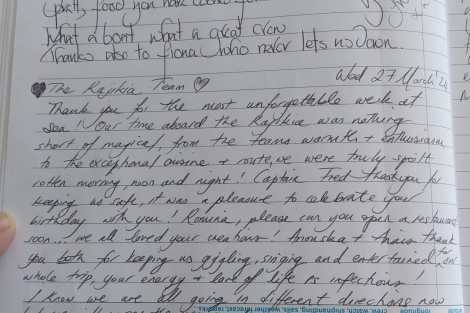 food you have
What a boat, what a great crew
Thanks also to Fiona who never lets us down.
The Rapkia Team
Wed 27 March
Thank you for the most unforgettable week at
sea! Our time aboard the Rapkia was nothing
short of magical, from the teams warmth + enthusiasm
to the exceptional cuisine + route, we were truly spoilt
rotten morning, noon and night! Captain Fred thankyou for
keeping us safe, it was a pleasure to celebrate your
birthday with you! please can you open a restaurant
soon... we all loved your creations! Anouska + thank
you both for keeping us giggling, singing and entertained for
whole trip, your energy + love of life is infectious!
I know we are all going in different directions now
longitude crew, watch, shiphandling, sails, weather forecast, reports